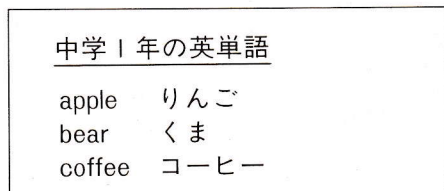 中学1年の英単語
apple りんご
bear くま
coffee コーヒー